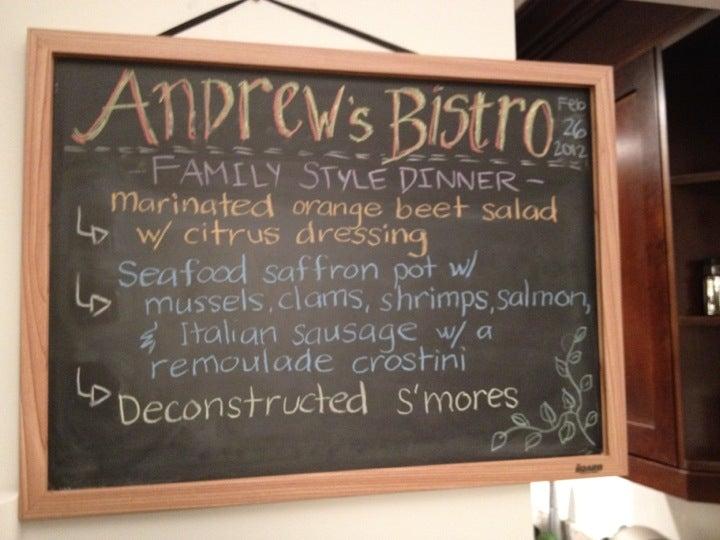 Andrew's Bistro
Feb
26
2012
- FAMILY STYLE DINNER -
marinated orange beet salad
w/ citrus dressing
Seafood saffron pot w/
mussels, clams, shrimps, salmon,
& Italian sausage w/ a
remoulade crostini
Deconstructed S'mores